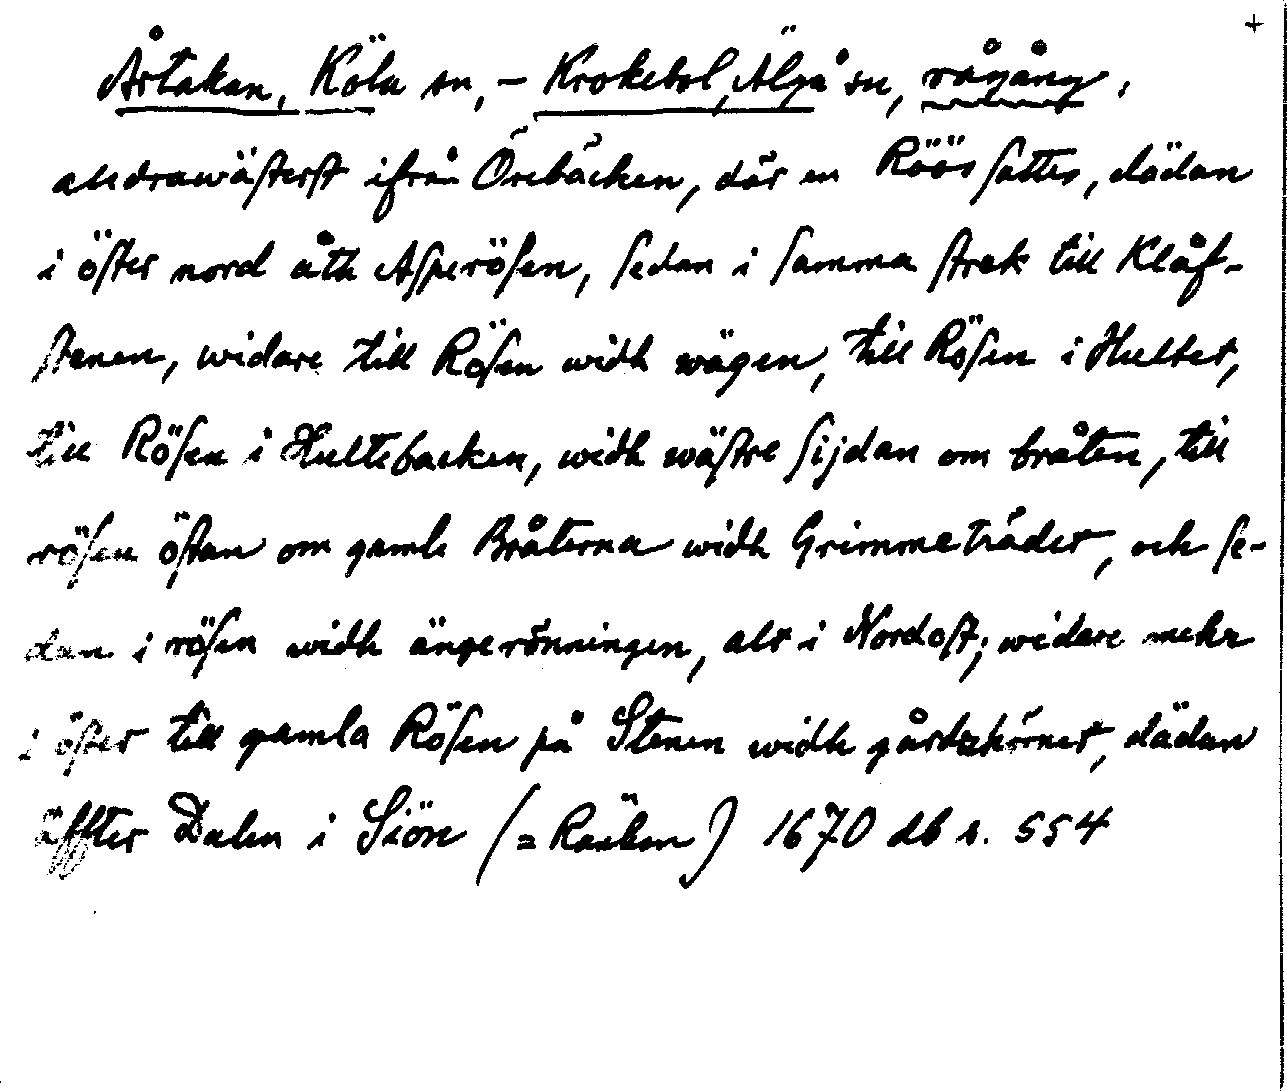 +
Årtakan, Köla sn, – Krokebol, Älgå sn, rågång,
alldrawästerst ifrån Örebäcken, där en Röös sattes, dädan
i öster nord åth Asperösen, sedan i samma strek till Klåf-
stenen, widare till Rösen widh wägen, till Rösen i Hultet,
till Rösen i Hultebacken, widh wästre sijdan om bråten, till
rösen östan om gamle Bråterna widh Grimmeträdet, och se-
dan i rösen widh ängerönningen, alt i Nordost; widare mehr
i öster till gamla Rösen på Stenen widh gårdzhörnet, dädan
äffter Dalen i Siöre (= Racken) 1670 db s. 554